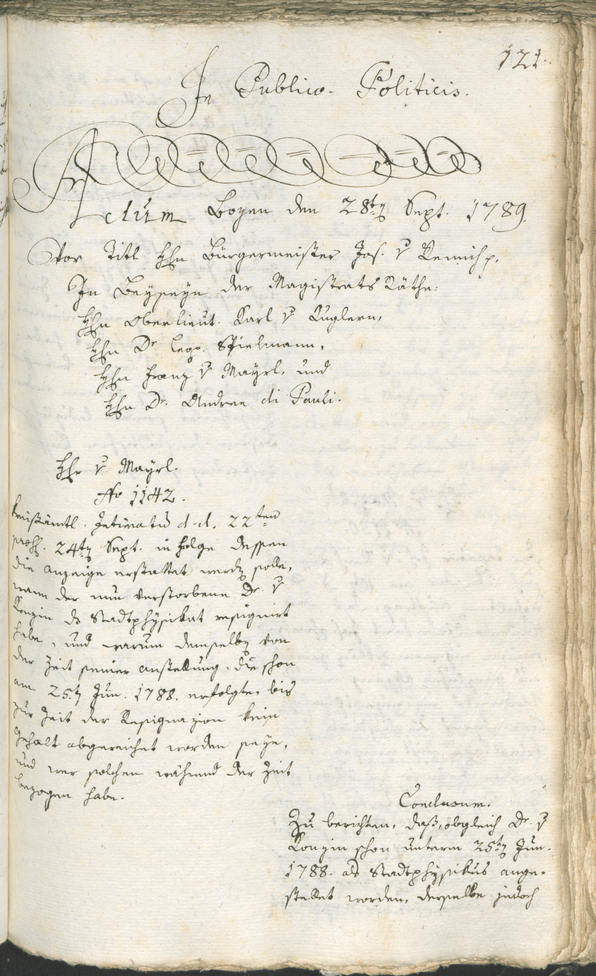 121.
In Publico-Politicis.
Actum Bozen den 28ten Sept. 1789
Vor Titl Hhn Bürgermeister Jos. v Remich p.
In Beyseyn der Magistrats Räthe.
Hhn Oberlieut. Karl v Kuglern,
Hhn Dr Leop. Spielmann,
Hhn Franz v Mayrl, und
Hhn Dr. Andree di Pauli.
Hhr v Mayrl.
No 1142.
Kreisämtl. Intimatum d. d. 22ten
24ten Sept. in Folge dessen
die Anzeige erstattet werden solle,
wann der nun verstorbene Dr. v
das Stadtphysikat resignirt
habe, und warum demselben von
der Zeit seiner Anstellung, die schon
am 25ten Jun. 1788. erfolgte, bis
zur Zeit der Resignazion kein
Gehalt abgereichet worden seye,
und wer solchen während der Zeit
bezogen habe.
Conclusum.
Zu berichten, daß, obgleich Dr. v
schon unterm 25ten Jun.
1788. als Stadtphysikus ange-
stellet worden, derselbe jedoch